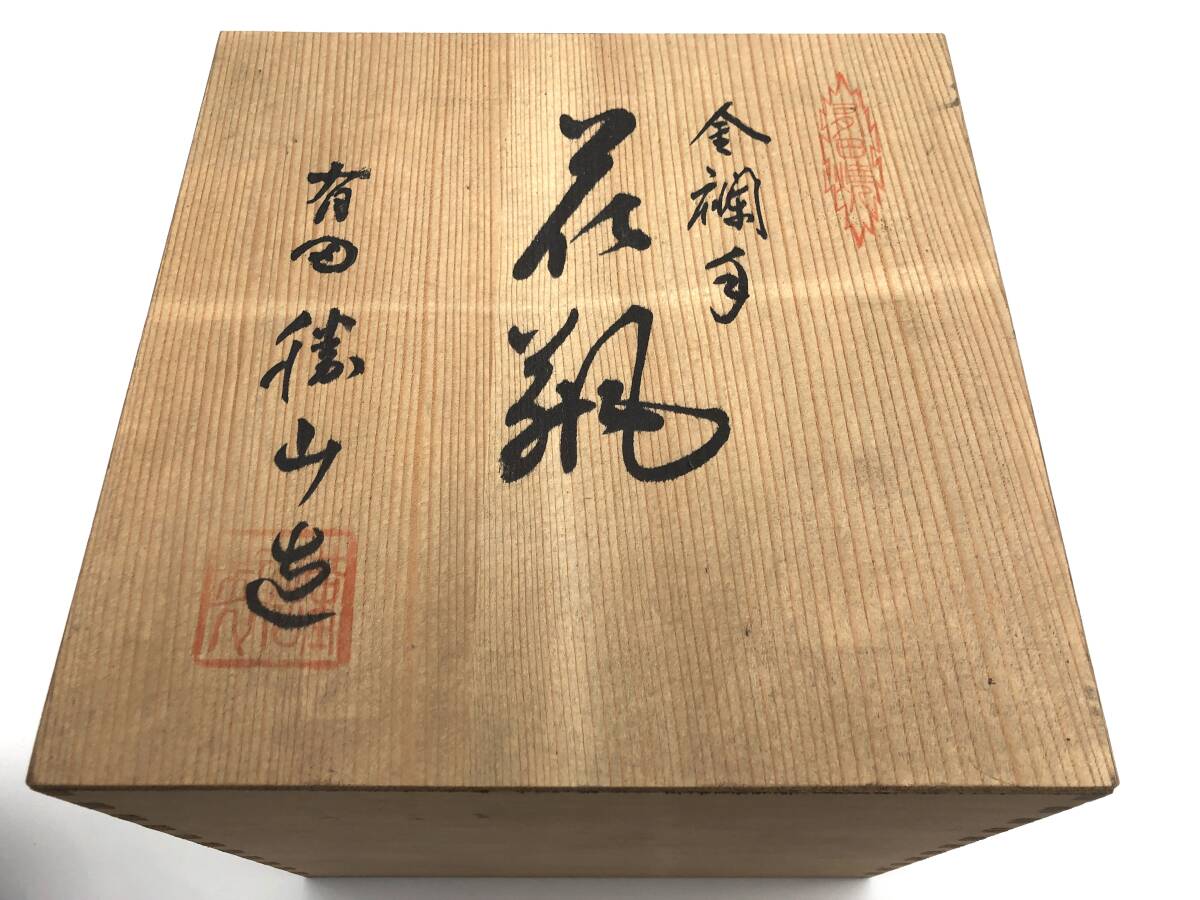 有田焼
金襴手
花瓶
有田 勝山造